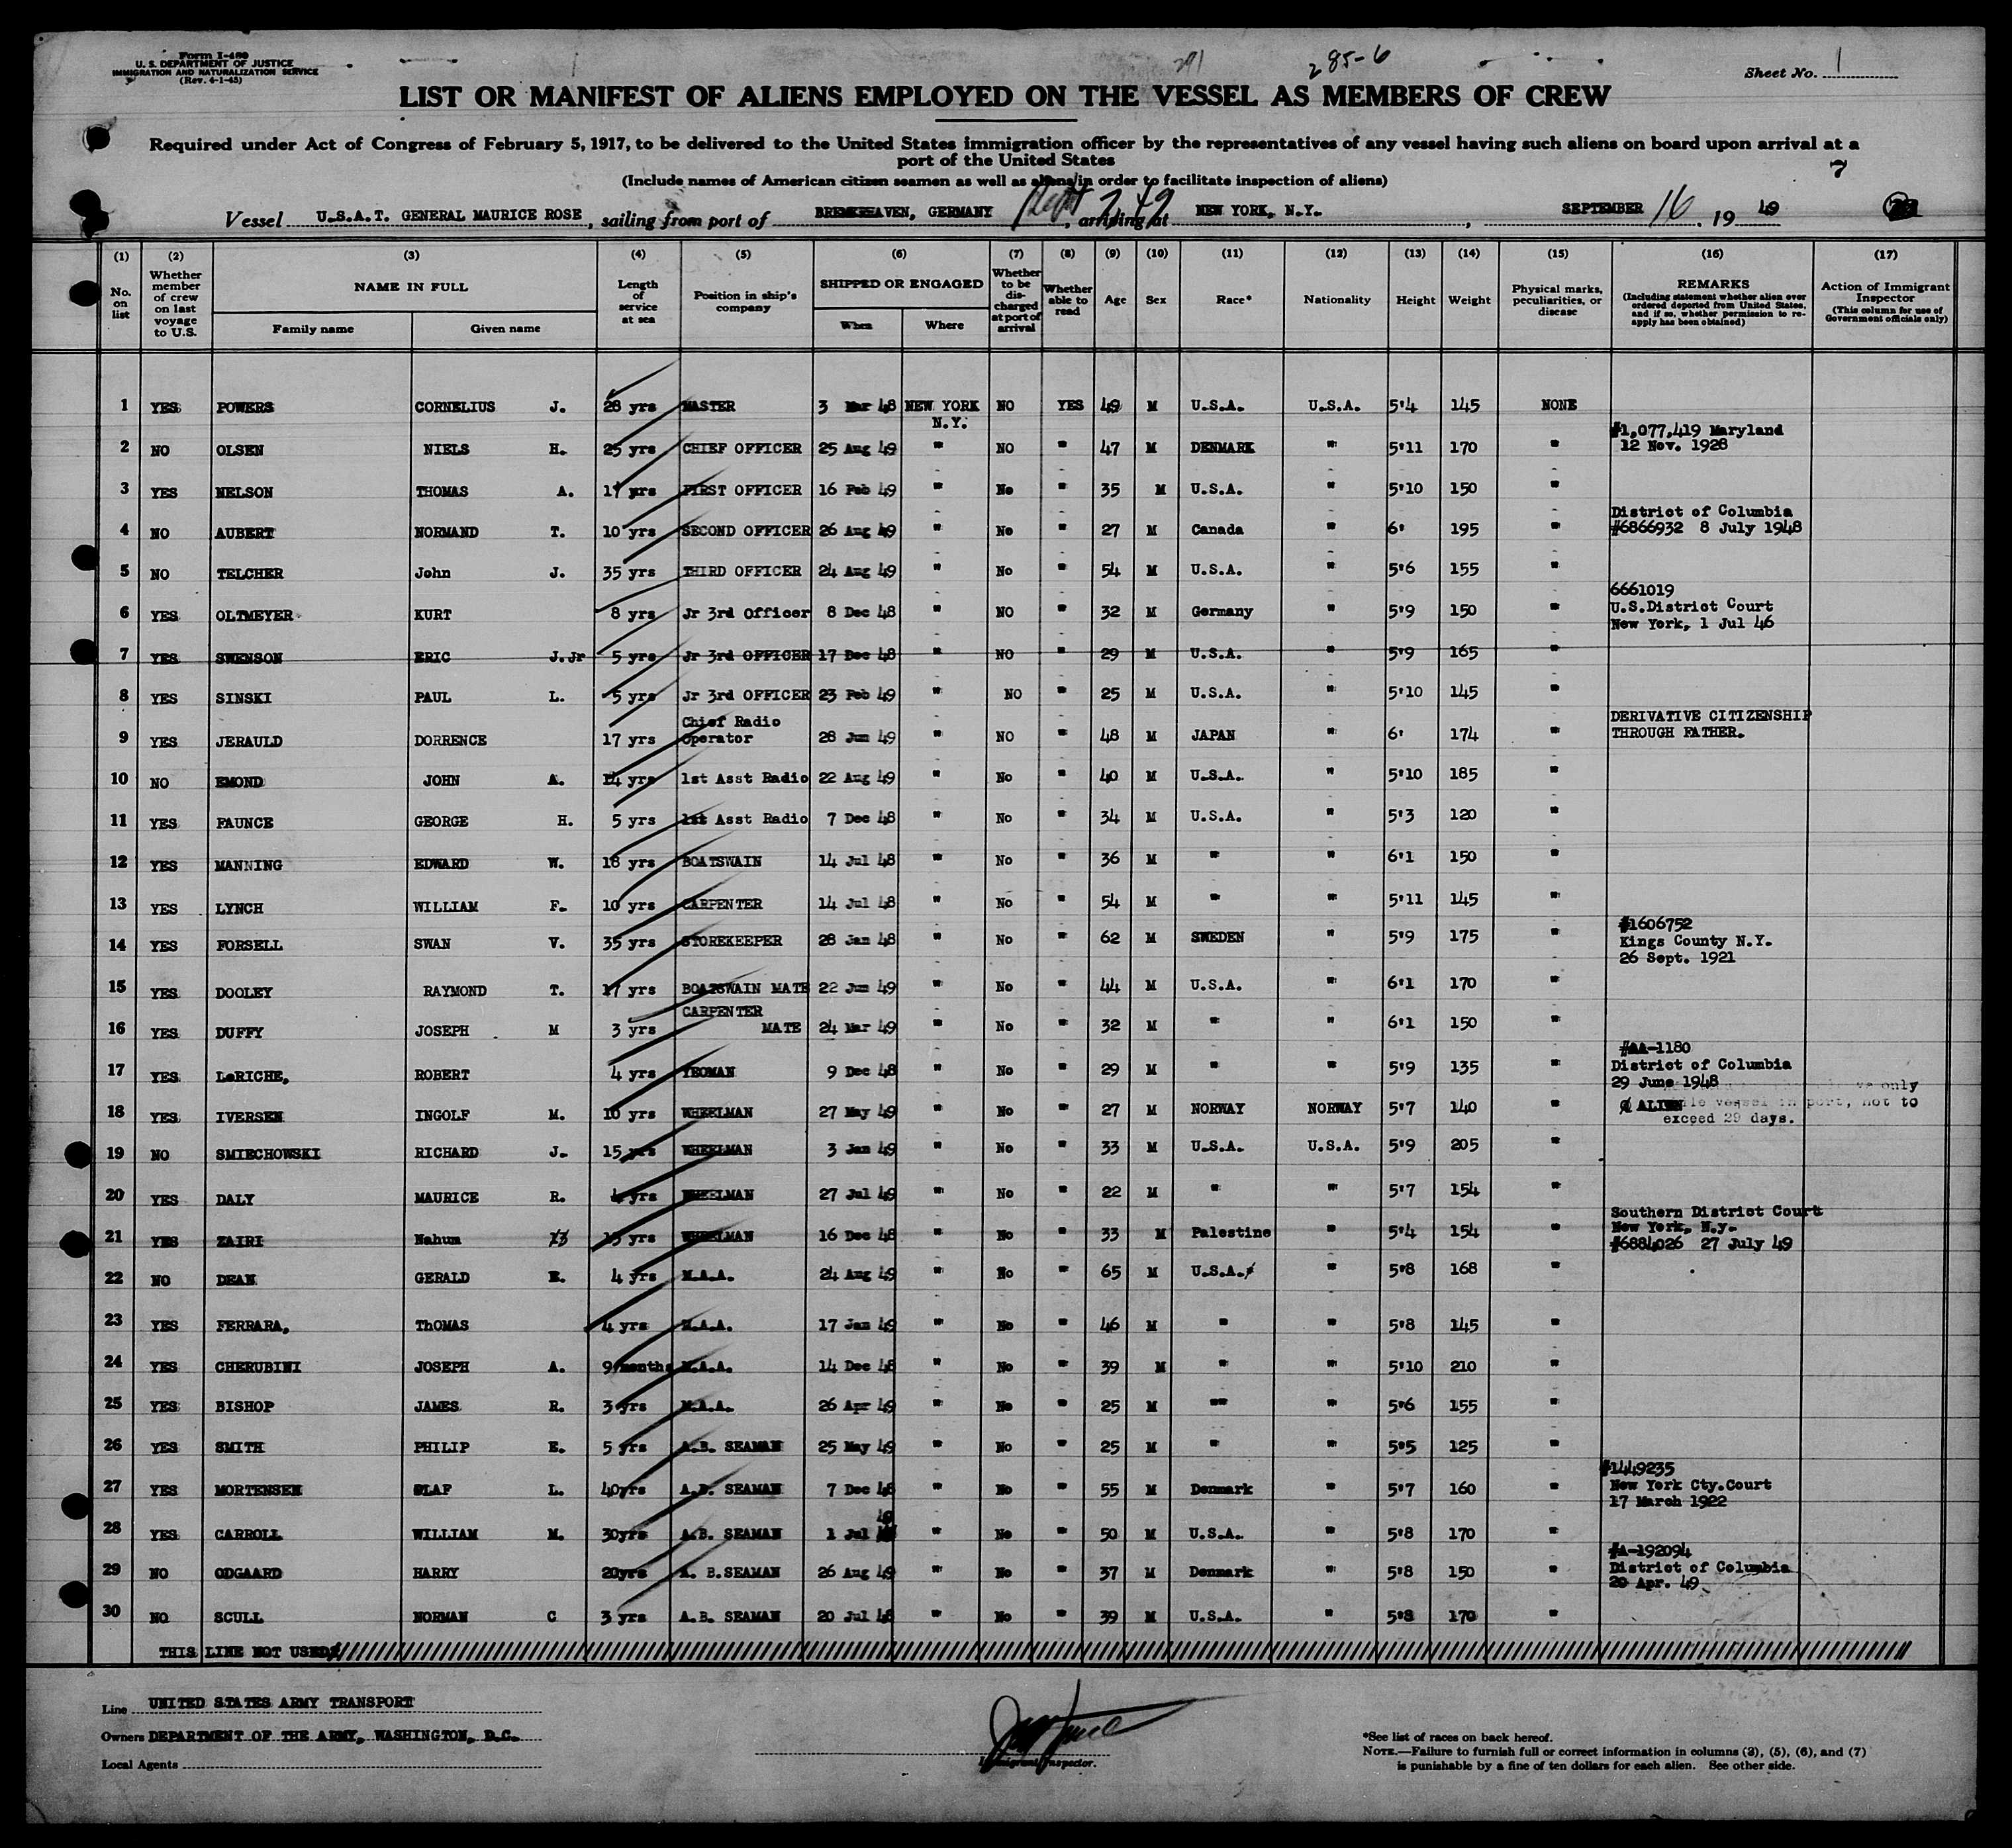 Form I-480
U. S. DEPARTMENT OF JUSTICE
IMMIGRATION AND NATURALIZATION SERVICE
(Rev. 4-1-45)
285-6
Sheet No. 1
LIST OR MANIFEST OF ALIENS EMPLOYED ON THE VESSEL AS MEMBERS OF CREW
Required under Act of Congress of February 5, 1917, to be delivered to the United States immigration officer by the representatives of any vessel having such aliens on board upon arrival at a
port of the United States
7
(Include names of American citizen seamen as well as aliens in order to facilitate inspection of aliens)
Vessel U.S.A.T. GENERAL MAURICE ROSE, sailing from port of BREMERHAVEN, GERMANY Sept 7, 49, arriving at NEW YORK, N.Y., SEPTEMBER 16, 19 49
(1) (2) (3) (4) (5) (6) (7) (8) (9) (10) (11) (12) (13) (14) (15) (16) (17)
No. on list Whether member of crew on last voyage to U.S. NAME IN FULL Family name Given name Length of service at sea Position in ship's company SHIPPED OR ENGAGED When Where Whether to be discharged at port of arrival Whether able to read Age Sex Race* Nationality Height Weight Physical marks, peculiarities, or disease REMARKS (Including statement whether alien ever ordered deported from United States, and if so, whether permission to reapply has been obtained) Action of Immigrant Inspector (This column for use of Government officials only)
1 YES POWERS CORNELIUS J. 28 yrs MASTER 3 Mar 48 NEW YORK N.Y. NO YES 49 M U.S.A. U.S.A. 5'4 145 NONE
2 NO OLSEN NIELS H. 25 yrs CHIEF OFFICER 25 Aug 49 " NO " 47 M DENMARK " 5'11 170 " #1,077,419 Maryland 12 Nov. 1928
3 YES NELSON THOMAS A. 17 yrs FIRST OFFICER 16 Feb 49 " No " 35 M U.S.A. " 5'10 150 "
4 NO AUBERT NORMAND T. 10 yrs SECOND OFFICER 26 Aug 49 " No " 27 M Canada " 6' 195 " District of Columbia #6866932 8 July 1948
5 NO TELCHER John J. 35 yrs THIRD OFFICER 24 Aug 49 " No " 54 M U.S.A. " 5'6 155 "
6 YES OLTMEYER KURT 8 yrs Jr 3rd Officer 8 Dec 48 " NO " 32 M Germany " 5'9 150 " 6661019 U.S.District Court New York, 1 Jul 46
7 YES SWENSON ERIC J.Jr 5 yrs Jr 3rd OFFICER 17 Dec 48 " NO " 29 M U.S.A. " 5'9 165 "
8 YES SINSKI PAUL L. 5 yrs Jr 3rd OFFICER 23 Feb 49 " NO " 25 M U.S.A. " 5'10 145 "
9 YES JERAULD DORRENCE 17 yrs Chief Radio Operator 28 Jun 49 " NO " 48 M JAPAN " 6' 174 " DERIVATIVE CITIZENSHIP THROUGH FATHER.
10 NO EMOND JOHN A. 14 yrs 1st Asst Radio 22 Aug 49 " No " 40 M U.S.A. " 5'10 185 "
11 YES FAUNCE GEORGE H. 5 yrs 1st Asst Radio 7 Dec 48 " No " 34 M U.S.A. " 5'3 120 "
12 YES MANNING EDWARD W. 18 yrs BOATSWAIN 14 Jul 48 " No " 36 M " " 6'1 150 "
13 YES LYNCH WILLIAM F. 10 yrs CARPENTER 14 Jul 48 " No " 54 M " " 5'11 145 "
14 YES FORSELL SWAN V. 35 yrs STOREKEEPER 28 Jan 48 " No " 62 M SWEDEN " 5'9 175 " #1606752 Kings County N.Y. 26 Sept. 1921
15 YES DOOLEY RAYMOND T. 17 yrs BOATSWAIN MATE 22 Jun 49 " No " 44 M U.S.A. " 6'1 170 "
16 YES DUFFY JOSEPH M 3 yrs CARPENTER MATE 24 Mar 49 " No " 32 M " " 6'1 150 "
17 YES LeRICHE, ROBERT 4 yrs YEOMAN 9 Dec 48 " No " 29 M " " 5'9 135 " #AA-1180 District of Columbia 29 June 1948
18 YES IVERSEN INGOLF M. 10 yrs WHEELMAN 27 May 49 " No " 27 M NORWAY NORWAY 5'7 140 " ALIEN only while vessel in port, not to exceed 29 days.
19 NO SMIECHOWSKI RICHARD J. 15 yrs WHEELMAN 3 Jan 49 " No " 33 M U.S.A. U.S.A. 5'9 205 "
20 YES DALY MAURICE R. 4 yrs WHEELMAN 27 Jul 49 " No " 22 M " " 5'7 154 "
21 YES ZAIRI Nahum 13 yrs WHEELMAN 16 Dec 48 " No " 33 M Palestine " 5'4 154 " Southern District Court New York, N.y. #6884026 27 July 49
22 NO DEAN GERALD E. 4 yrs M.A.A. 24 Aug 49 " No " 65 M U.S.A. " 5'8 168 "
23 YES FERRARA, ThOMAS 4 yrs M.A.A. 17 Jan 49 " No " 46 M " " 5'8 145 "
24 YES CHERUBINI JOSEPH A. 9 months M.A.A. 14 Dec 48 " No " 39 M " " 5'10 210 "
25 YES BISHOP JAMES R. 3 yrs M.A.A. 26 Apr 49 " No " 25 M " " 5'6 155 "
26 YES SMITH PHILIP E. 5 yrs A.B. SEAMAN 25 May 49 " No " 25 M " " 5'5 125 "
27 YES MORTENSEN OLAF L. 40yrs A.B. SEAMAN 7 Dec 48 " No " 55 M Denmark " 5'7 160 " #1449235 New York Cty.Court 17 March 1922
28 YES CARROLL WILLIAM M. 30yrs A.B. SEAMAN 1 Jul 49 " No " 50 M U.S.A. " 5'8 170 "
29 NO ODGAARD HARRY 20yrs A. B.SEAMAN 26 Aug 49 " No " 37 M Denmark " 5'8 150 " #A-192094 District of Columbia 20 Apr. 49
30 NO SCULL NORMAN C 3 yrs A.B. SEAMAN 20 Jul 48 " No " 39 M U.S.A. " 5'8 170 "
THIS LINE NOT USED
Line UNITED STATES ARMY TRANSPORT
Owners DEPARTMENT OF THE ARMY, WASHINGTON, D.C.
Local Agents
Immigrant Inspector.
*See list of races on back hereof.
NOTE.—Failure to furnish full or correct information in columns (3), (5), (6), and (7)
is punishable by a fine of ten dollars for each alien. See other side.